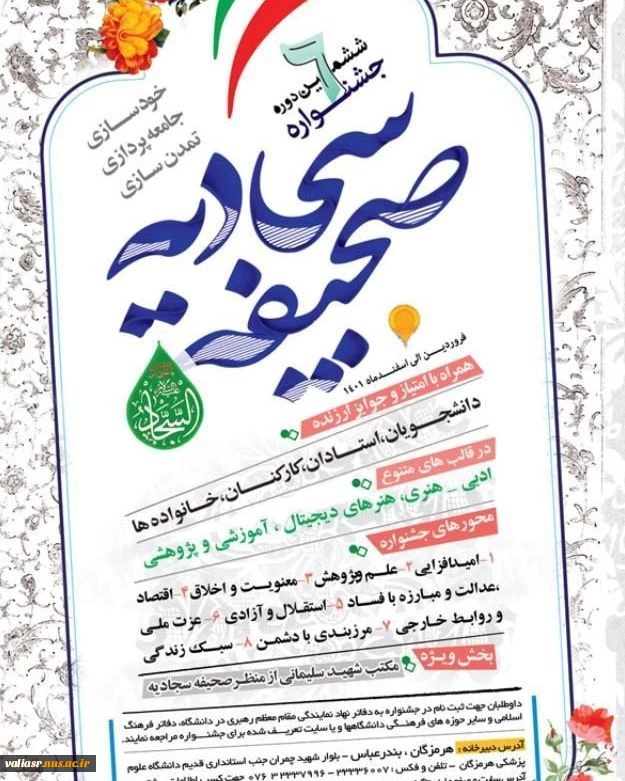 ششمین دوره
۶
جشنواره
صحیفه سجادیه
خودسازی
جامعه پردازی
تمدن سازی
السجاد
فروردین الی اسفندماه ۱۴۰۱
همراه با امتیاز و جوایز ارزنده
دانشجویان، استادان، کارکنان، خانواده ها
در قالب های متنوع
ادبی _ هنری، هنرهای دیجیتال ، آموزشی و پژوهشی
محورهای جشنواره
۱- امیدافزایی ۲- علم و پژوهش ۳- معنویت و اخلاق ۴- اقتصاد
،عدالت و مبارزه با فساد ۵- استقلال و آزادی ۶- عزت ملی
و روابط خارجی ۷- مرزبندی با دشمن ۸- سبک زندگی
بخش ویژه
مکتب شهید سلیمانی از منظر صحیفه سجادیه
داوطلبان جهت ثبت نام در جشنواره به دفاتر نهاد نمایندگی مقام معظم رهبری در دانشگاه، دفاتر فرهنگ
اسلامی و سایر حوزه های فرهنگی دانشگاهها و یا سایت تعریف شده برای جشنواره مراجعه نمایند.
آدرس دبیرخانه : هرمزگان ، بندرعباس - بلوار شهید چمران جنب استانداری قدیم دانشگاه علوم
پزشکی هرمزگان - تلفن و فکس : ۳۳۳۳۶۰۰۷ - ۳۳۳۳۷۹۹۶ ۰۷۶ جهت کسب اطلاعات
valiasr.nus.ac.ir